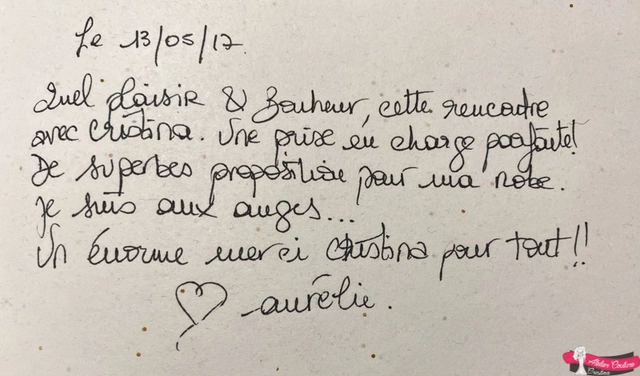 Le 13/05/17
Quel plaisir & Bonheur, cette rencontre
avec Cristina. Une prise en charge parfaite!
De superbes proposition pour ma robe.
Je suis aux anges...
Un énorme merci Cristina pour tout!!
aurélie.
Atelier Couture
Cristina